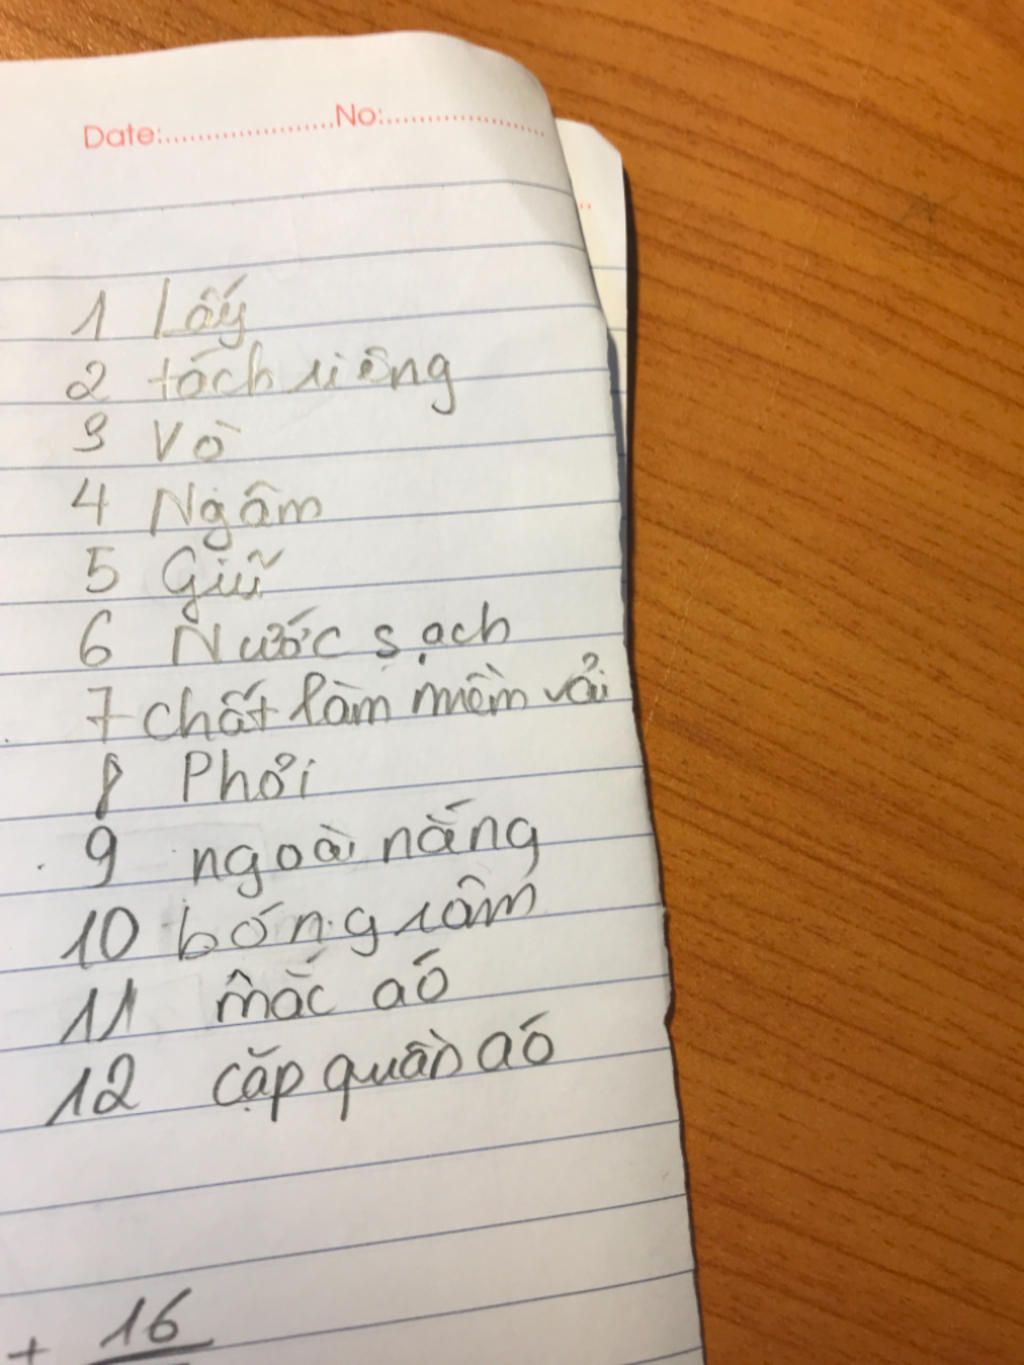 Date:.....................No:....................
1 Lấy
2 tách riêng
3 Vò
4 Ngâm
5 Giũ
6 Nước sạch
7 chất làm mềm vải
8 Phơi
9 ngoài nắng
10 bóng râm
11 mắc aó
12 cặp quần aó
+ 16